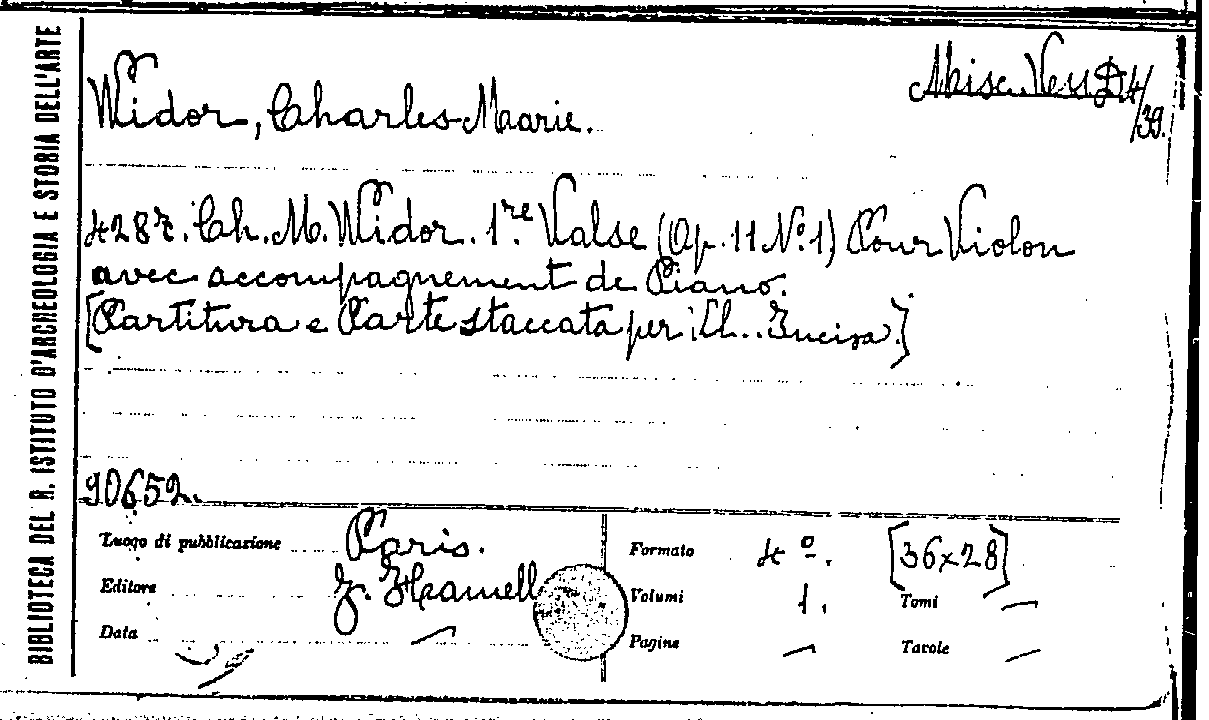 BIBLIOTECA DEL R. ISTITUTO D'ARCHEOLOGIA E STORIA DELL'ARTE
Widor, Charles-Marie.
Misc. Vess. 
/39.
4287. Ch. M. Widor. 1.re Valse (Op. 11 No. 1) Pour Violon
avec accompagnement de Piano.
[Partitura e Parte staccata per il Incisa.]
90652.
Luogo di pubblicazione Paris.
Editore J. Hamelle
Data —
Formato 4º. [36x28]
Volumi 1. Tomi —
Pagine — Tavole —